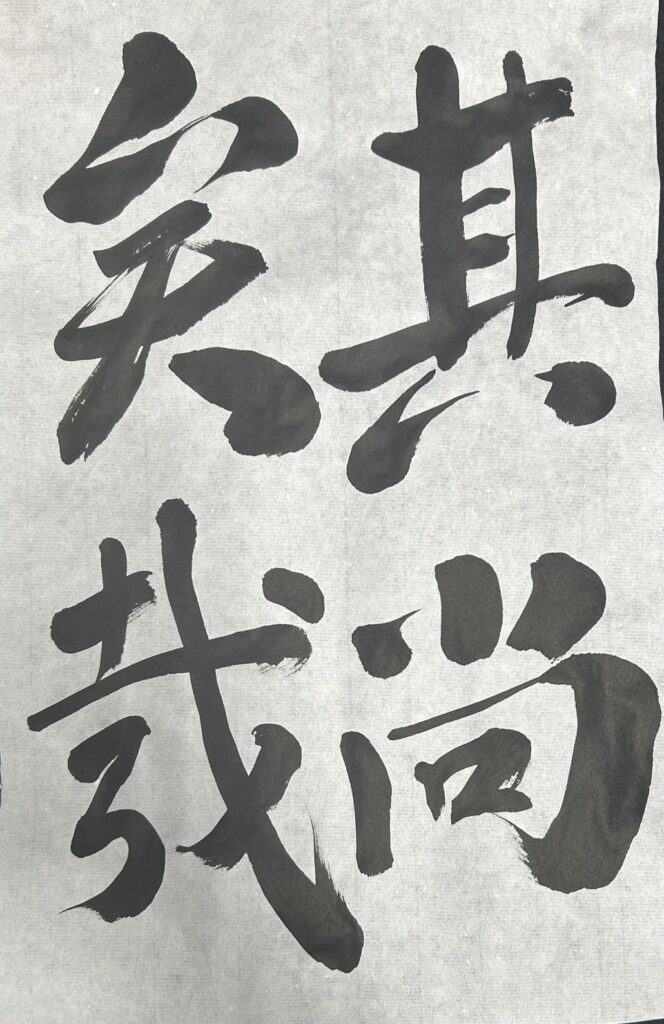 其尚
矣哉